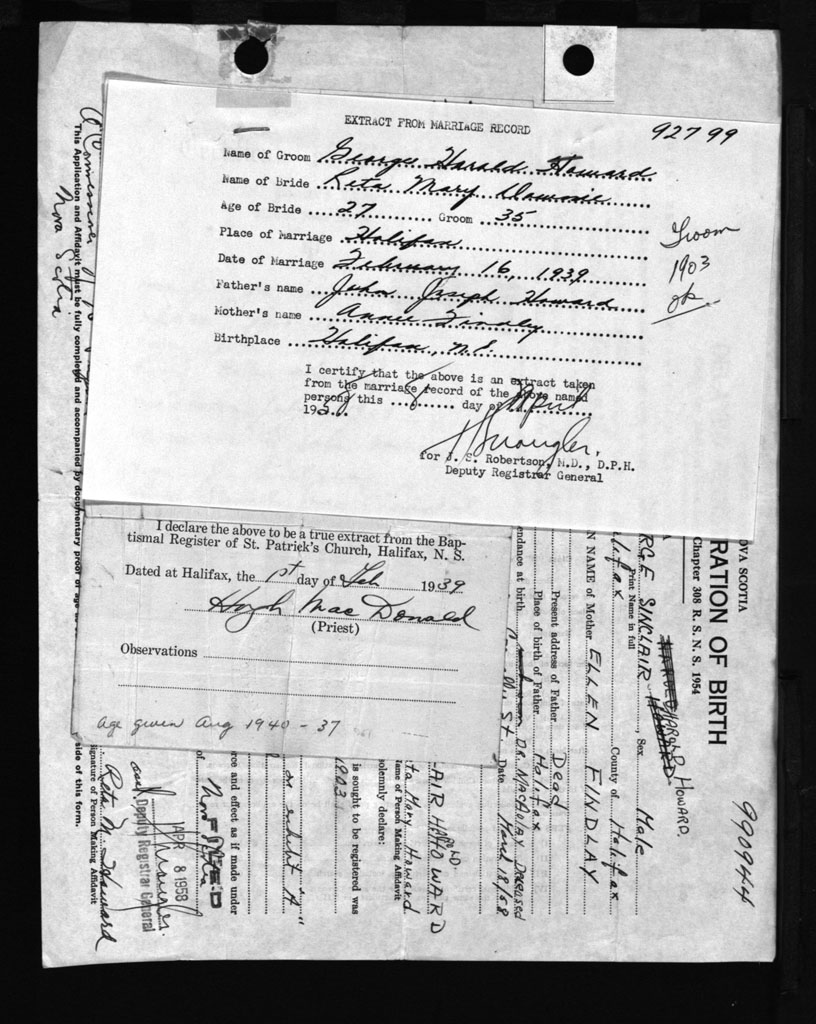 EXTRACT FROM MARRIAGE RECORD
92799
Name of Groom George Harald Howard
Name of Bride Reta Mary
Age of Bride 27 Groom 35
Place of Marriage Halifax
Date of Marriage February 16, 1939
Father's name John Joseph Howard
Mother's name Annie Findley
Birthplace Halifax, N.S.
Groom
1903
ok
I certify that the above is an extract taken
from the marriage record of the above named
persons this 8 day of April
195
for J. S. Robertson, M.D., D.P.H.
Deputy Registrar General
I declare the above to be a true extract from the Bap-
tismal Register of St. Patrick's Church, Halifax, N. S.
Dated at Halifax, the 1st day of Feb 1939
Hugh MacDonald
(Priest)
Observations
age given Aug 1940 - 37
990944
OVA SCOTIA
RATION OF BIRTH
Chapter 308 R. S. N. S. 1954
HAROLD HOWARD
RGE SINCLAIR HOWARD
Print Name in full
Sex Male
lifax County of Halifax
N NAME of Mother ELLEN FINDLAY
Present address of Father Dead
Place of birth of Father Halifax
endance at birth DR. MACAULAY Deceased
St Date March 18/58
AIR HOWARD
ta Mary Howard
Name of Person Making Affidavit
olemnly declare:
is sought to be registered was
1903
on exhibit "A"
rce and effect as if made under
of Nova Scotia
APR 8 1958
Deputy Registrar General
Reta M. Howard
Signature of Person Making Affidavit
side of this form.
A Commissioner of
Nova Scotia
This Application and Affidavit must be fully completed and accompanied by documentary proof of age